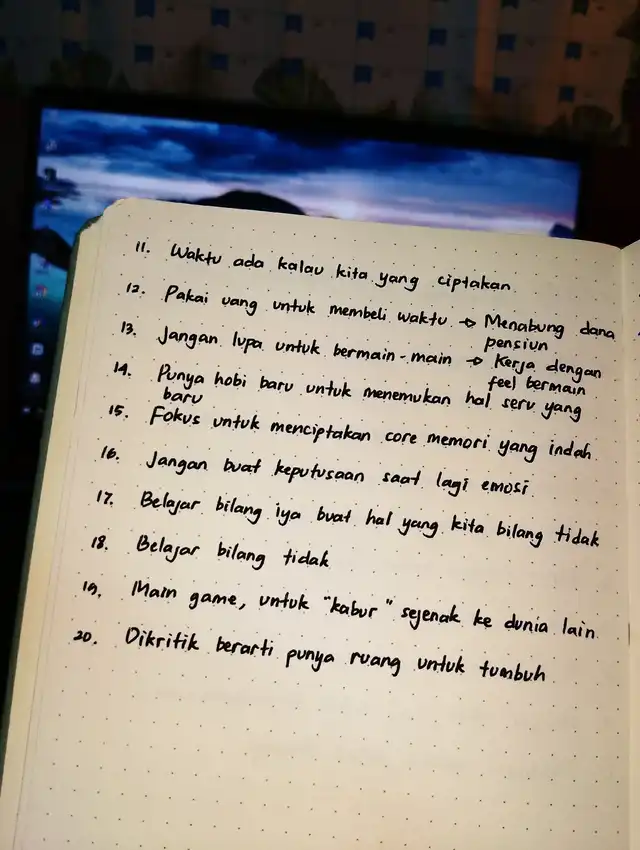 11. Waktu ada kalau kita yang ciptakan
12. Pakai uang untuk membeli waktu → Menabung dana
pensiun
13. Jangan lupa untuk bermain-main → Kerja dengan
feel bermain
14. Punya hobi baru untuk menemukan hal seru yang
baru
15. Fokus untuk menciptakan core memori yang indah
16. Jangan buat keputusaan saat lagi emosi
17. Belajar bilang iya buat hal yang kita bilang tidak
18. Belajar bilang tidak
19. Main game, untuk "kabur" sejenak ke dunia lain
20. Dikritik berarti punya ruang untuk tumbuh